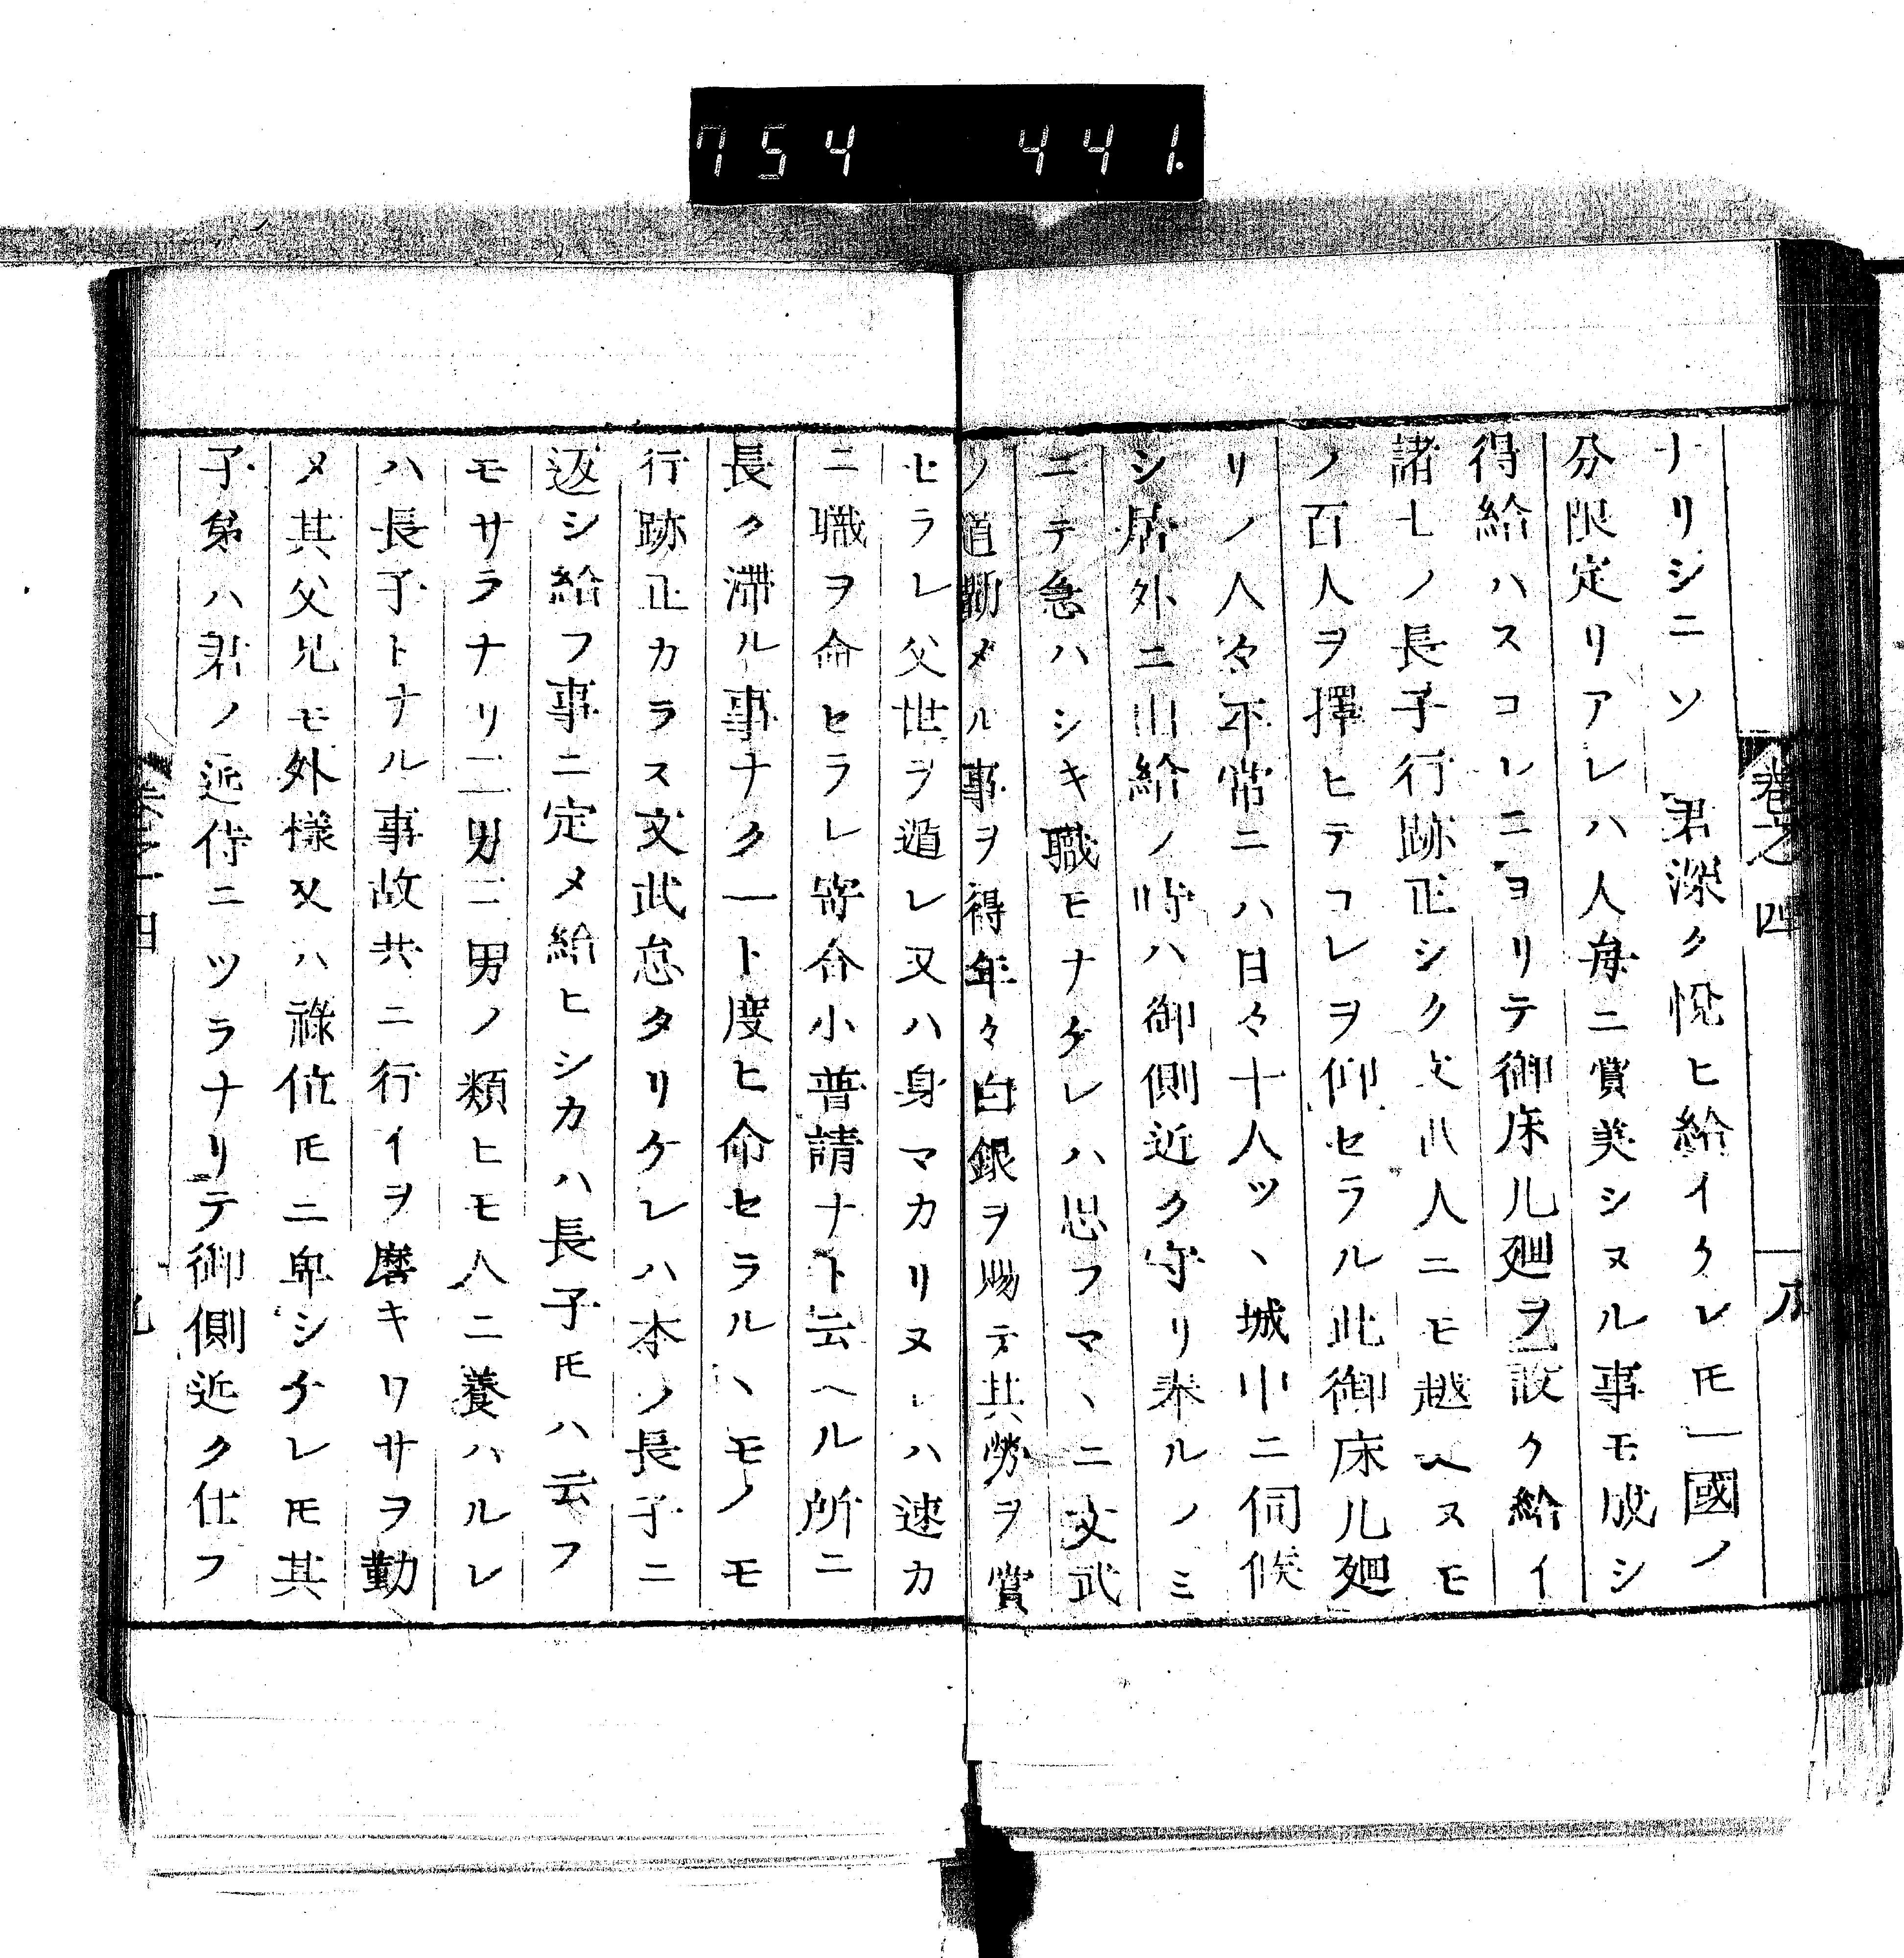 754 441.
巻之四
九
ナリシニソ 君深ク悦ヒ給イクレ𪜈一國ノ
分限定リアレハ人毎ニ賞美シヌル事モ成シ
得給ハスコレニヨリテ御床儿廻ヲ設ク給イ
諸士ノ長子行跡正シク文八人ニモ越ヘヌモ
ノ百人ヲ擇ヒテコレヲ仰セラル此御床儿廻
リノ人々平常ニハ日々十人ツヽ城中ニ伺候
シ居外ニ出給ノ時ハ御側近ク守リ奉ルノミ
ニテ急ハシキ職モナケレハ思フマヽニ文武
ノ道勤メル事ヲ得年々白銀ヲ賜テ其勞ヲ賞
セラレ父世ヲ遁レ又ハ身マカリヌレハ速カ
ニ職ヲ命セラレ寄合小普請ナト云ヘル所ニ
長ク滞ル事ナク一ト度ヒ命セラルヽモノモ
行跡正カラス文武怠タリケレハ本ノ長子ニ
返シ給フ事ニ定メ給ヒシカハ長子𪜈ハ云フ
モサラナリ二男三男ノ類ヒモ人ニ養ハルレ
ハ長子トナル事故共ニ行イヲ磨キワサヲ勤
メ其父兄モ外様又ハ祿位𪜈ニ卑シケレ𪜈其
子弟ハ君ノ近侍ニツラナリテ御側近ク仕フ